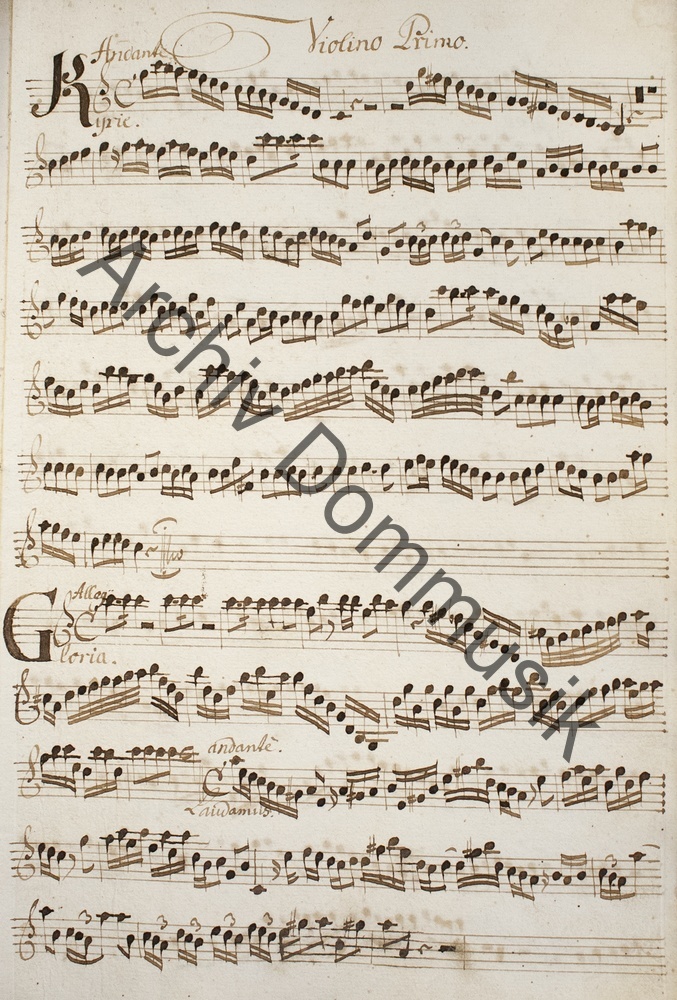 Violino Primo.
Andante
Kyrie.
3 3
Allegº
Gloria.
andantè.
Laudamus.
3
3 3 3 3 3
Archiv Dommusik